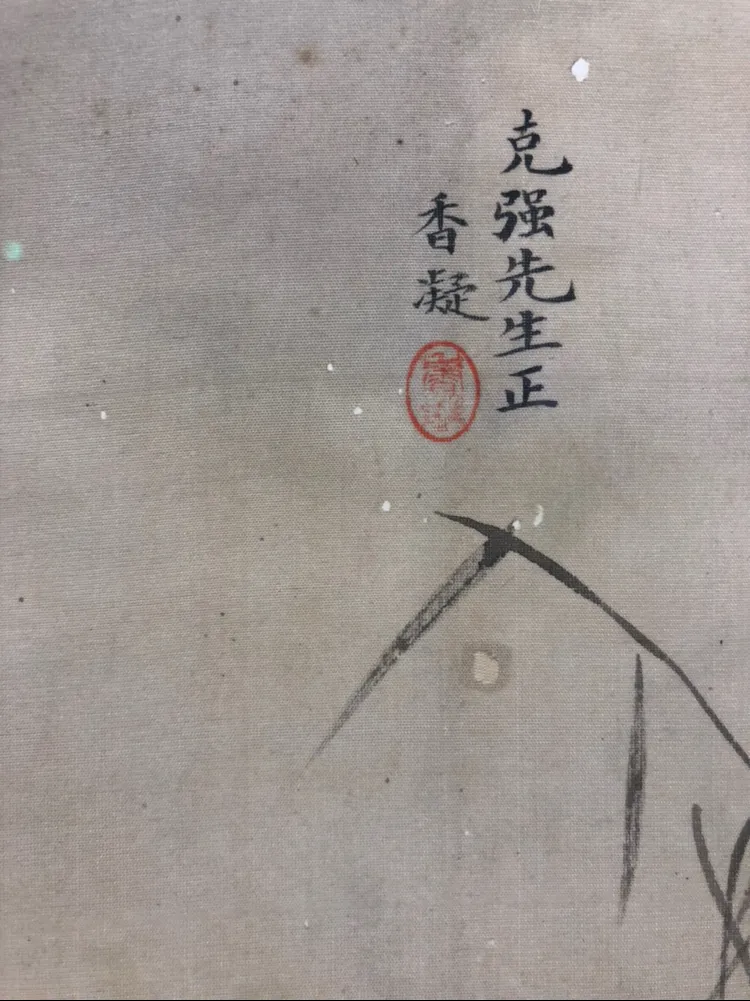 克强先生正
香凝